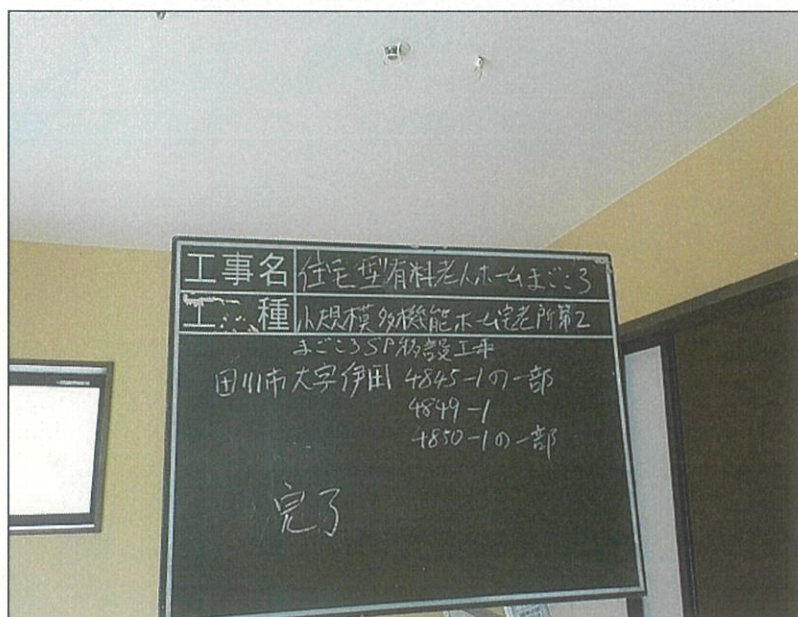 工事名 住宅型有料老人ホームまごころ
工 種 小規模多機能ホーム宅老所第2
まごころSP移設工事
田川市大字伊田 4845-1の一部
4849-1
4850-1の一部
完了